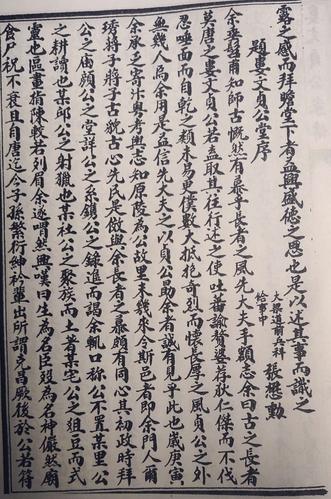 露之感而拜瞻堂下者益興盛德之思也是以述其事而識之
題婁文貞公堂序
大梁道前兵科
給事中
張懋勳
余垂髫甫知師古慨然有慕乎長者之風先大夫手顧志余曰古之長者
莫唐之婁文貞公若盍取其往行述之使吐蕃諭贊婆荐狄仁傑而不伐
忍唾面而自乾之類未易更僕數大抵抱奇烈而懷長厚之風貞公之外
無幾人焉余用是益信先大夫之以貞公勖余者誠有見乎此也歲庚寅
余承乏寄汴粵考輿志知原陵為公故里未幾來令斯邑者即余門人爾
琇將子將子古貌古心先民是倣與余長者之慕頗有同心其初政時拜
公之庙顏公之堂詳公之系鐫公之錄進而謁余輒口称公不置某里公
之耕讀也某邱公之射獵也某社公之聚族而土著某宅公之俎豆而式
靈也區畫指陳較若列眉余遂喟然興嘆曰生為名臣歿為名神儼然廟
食尸祝不衰且自唐迄今子孫繁衍紳衿軰出所謂克昌厥後於公若符